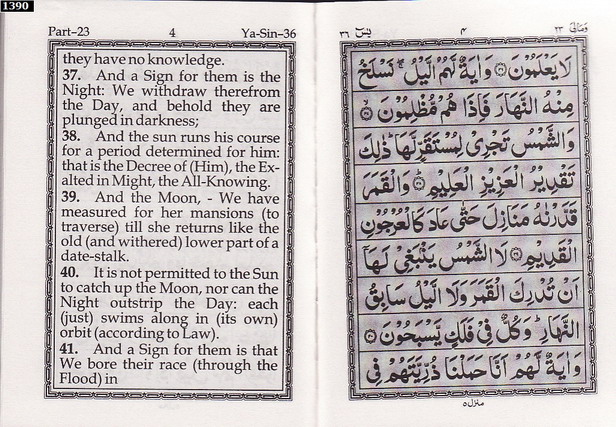 1390
Part–23 4 Ya-Sin–36
they have no knowledge.
37. And a Sign for them is the
Night: We withdraw therefrom
the Day, and behold they are
plunged in darkness;
38. And the sun runs his course
for a period determined for him:
that is the Decree of (Him), the Ex-
alted in Might, the All-Knowing.
39. And the Moon, - We have
measured for her mansions (to
traverse) till she returns like the
old (and withered) lower part of a
date-stalk.
40. It is not permitted to the Sun
to catch up the Moon, nor can the
Night outstrip the Day: each
(just) swims along in (its own)
orbit (according to Law).
41. And a Sign for them is that
We bore their race (through the
Flood) in
ومالی ٢٣ ٤ یٰسٓ ٣٦
لَا يَعْلَمُوْنَ ۝ وَاٰيَةٌ لَّهُمُ الَّيْلُ ۚ نَسْلَخُ
مِنْهُ النَّهَارَ فَاِذَا هُمْ مُّظْلِمُوْنَ ۝
وَالشَّمْسُ تَجْرِيْ لِمُسْتَقَرٍّ لَّهَا ۭ ذٰلِكَ
تَقْدِيْرُ الْعَزِيْزِ الْعَلِيْمِ ۝ وَالْقَمَرَ
قَدَّرْنٰهُ مَنَازِلَ حَتّٰى عَادَ كَالْعُرْجُوْنِ
الْقَدِيْمِ ۝ لَا الشَّمْسُ يَنْۢبَغِيْ لَهَآ
اَنْ تُدْرِكَ الْقَمَرَ وَلَا الَّيْلُ سَابِقُ
النَّهَارِ ۭ وَكُلٌّ فِيْ فَلَكٍ يَّسْبَحُوْنَ ۝
وَاٰيَةٌ لَّهُمْ اَنَّا حَمَلْنَا ذُرِّيَّتَهُمْ فِي
منزل ٥